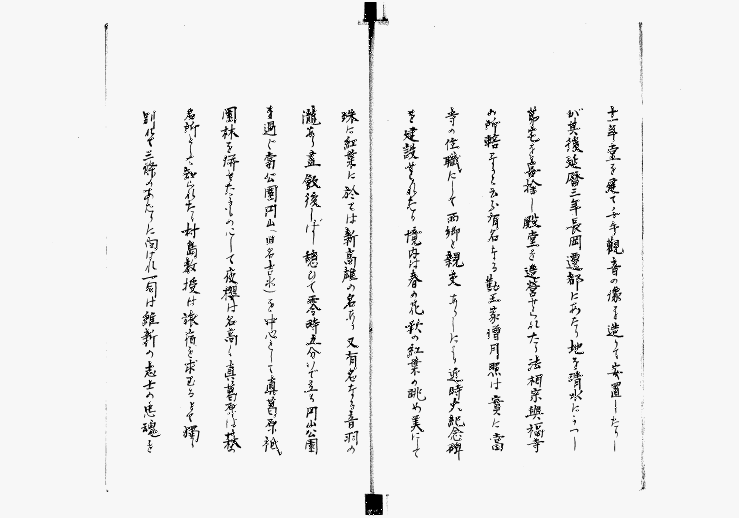 十一年堂を建て千手觀音の像を造りて安置したりし
が其後延曆三年長岡遷都にあたり地を清水にうつし
第宅を喜捨し殿堂を造營せられたり法相宗興福寺
の所轄なりと云ふ有名なる勤王家僧月照は實に當
寺の住職にして西郷と親交ありしにより近時大紀念碑
を建設せられたり境内は春の花秋の紅葉の眺め美にして
殊に紅葉に於ては新高雄の名あり又有名なる音羽の
瀧あり晝飯後しばし憩ひて零時五分いで立ち円山公園
を過ぐ當公園円山(旧名吉水)を中心として真葛原祇
園林を併せたるものにして夜櫻は名高く真葛原は萩
名所として知られたり村島教授は旅宿を求むるとて獨り
別れて三條のあたりに向はれ一同は維新の志士の忠魂を